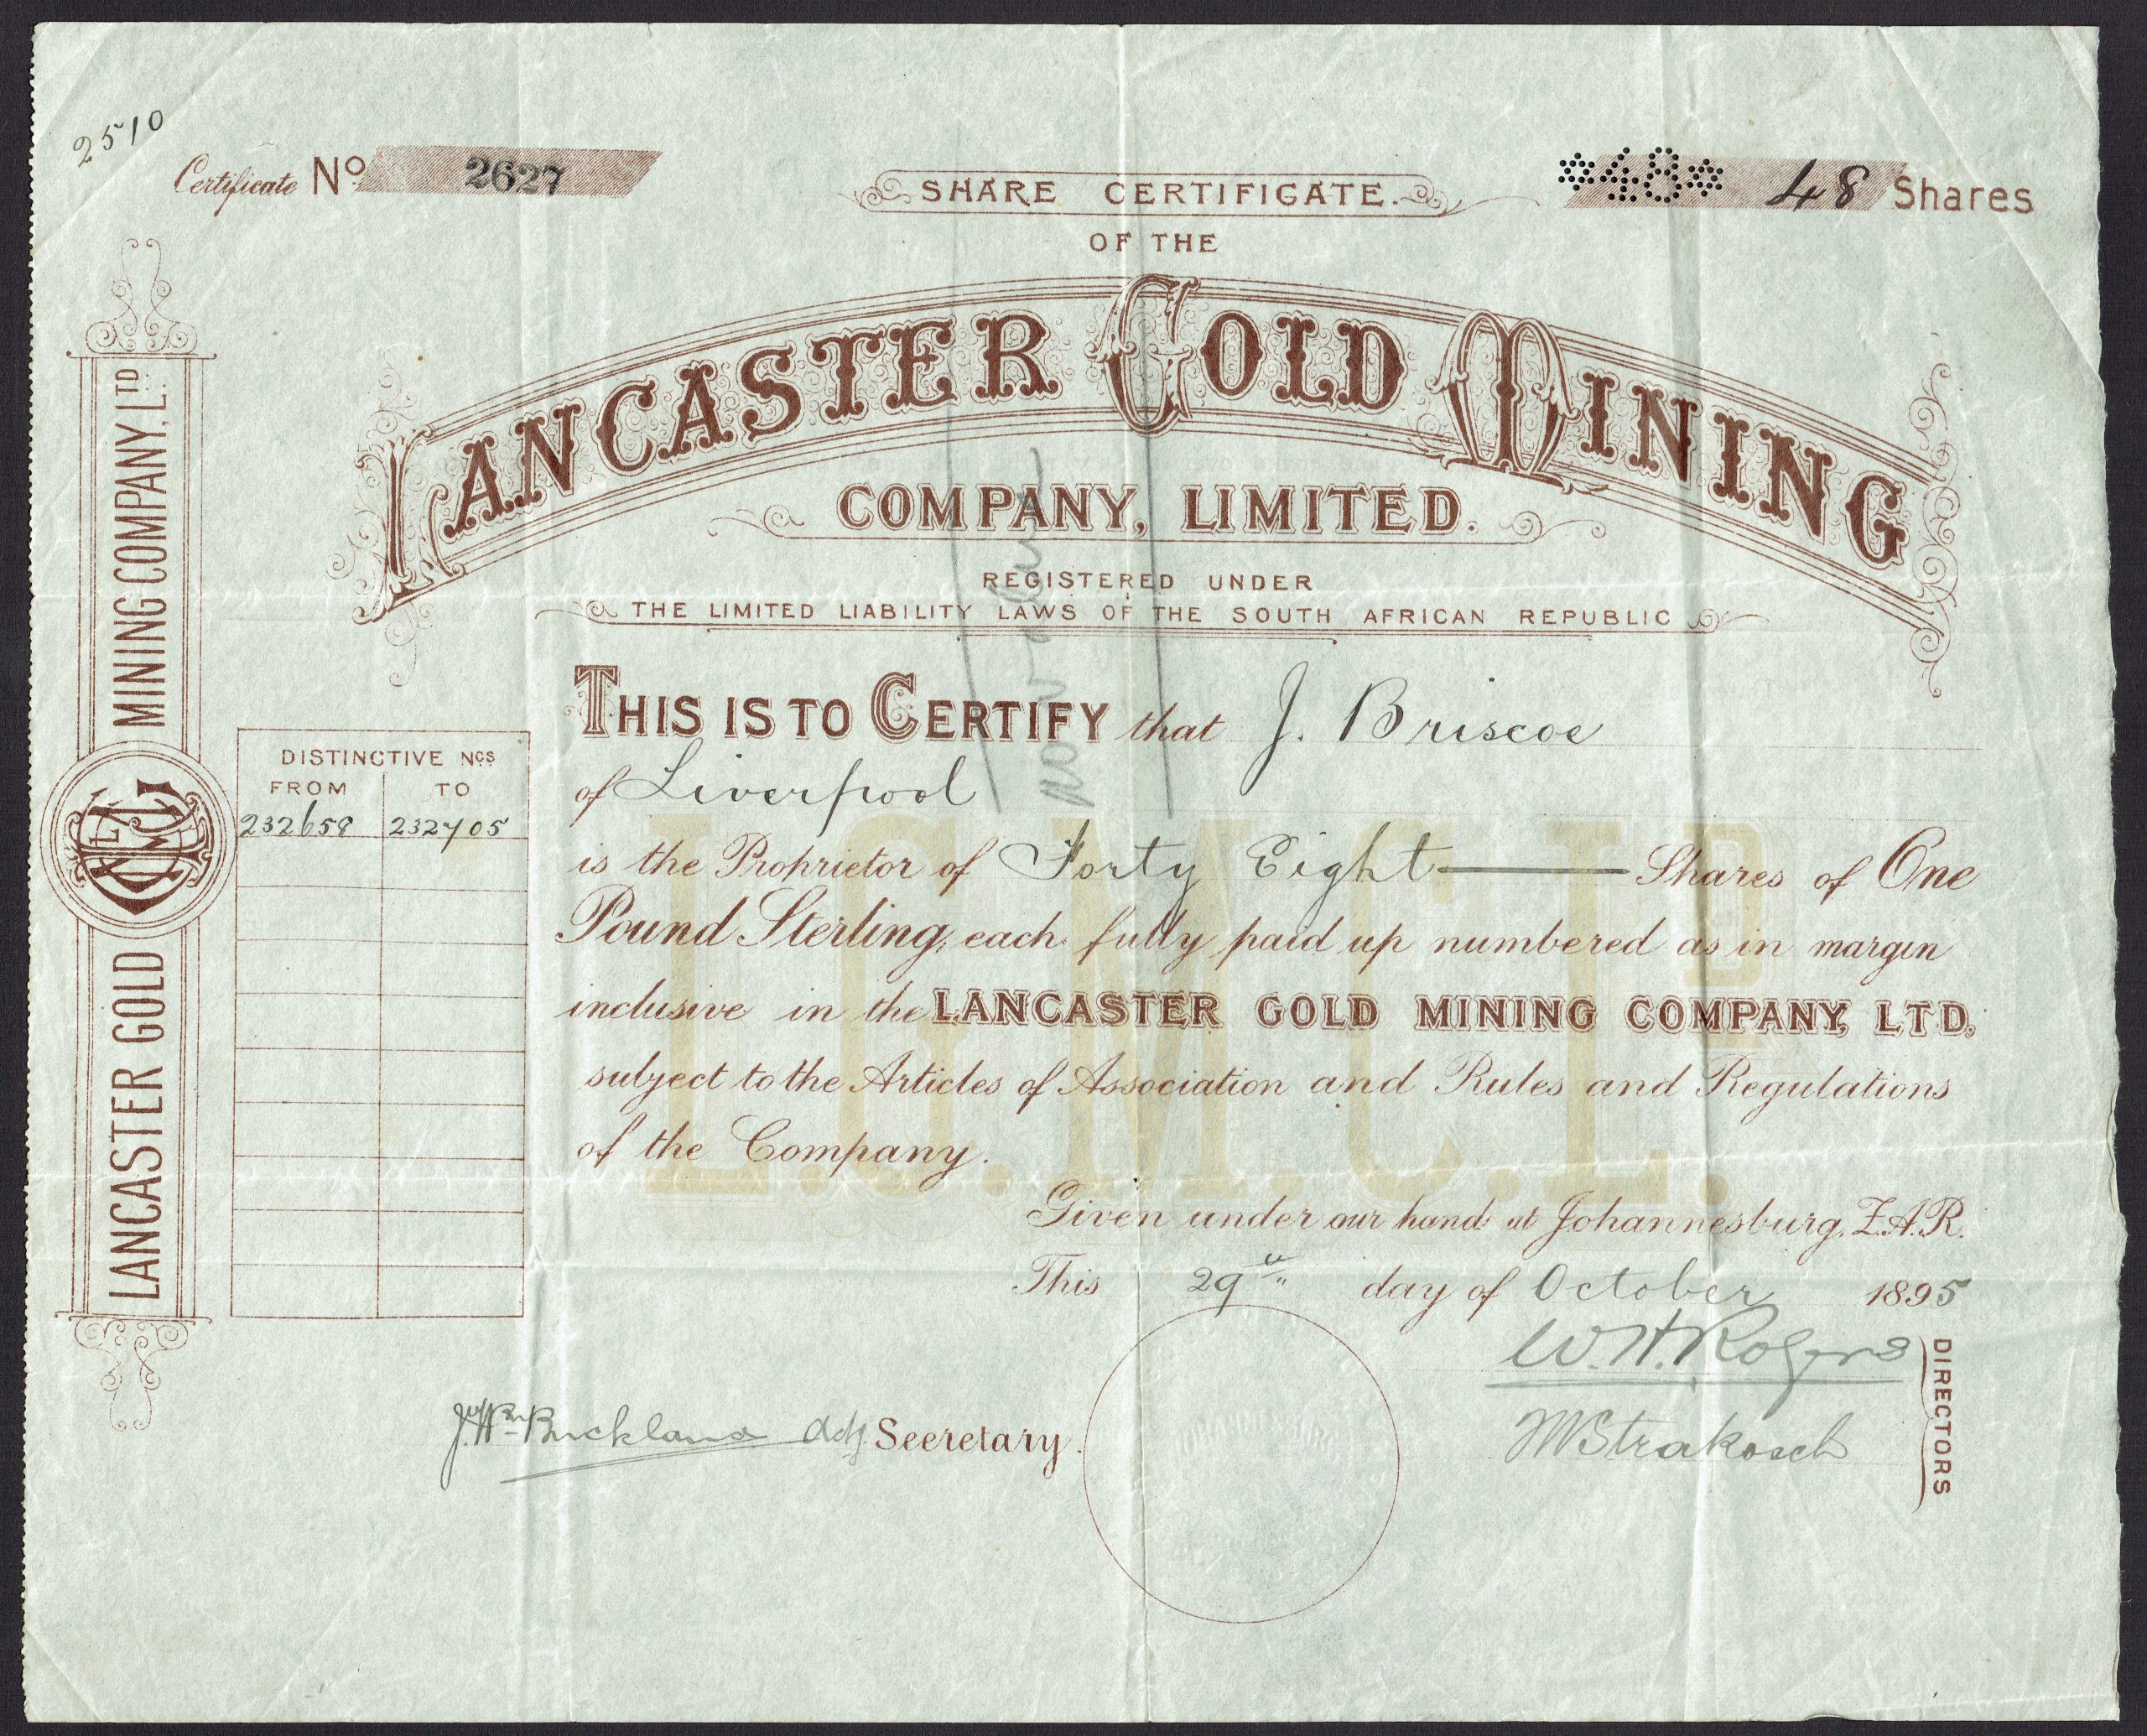 2510
Certificate No. 2627
SHARE CERTIFICATE.
*48* 48 Shares
OF THE
LANCASTER GOLD MINING
COMPANY, LIMITED.
REGISTERED UNDER
THE LIMITED LIABILITY LAWS OF THE SOUTH AFRICAN REPUBLIC
LANCASTER GOLD MINING COMPANY, LTD.
DISTINCTIVE NOS
FROM TO
232658 232705
THIS IS TO CERTIFY that J. Briscoe
of Liverpool
is the Proprietor of Forty Eight Shares of One
Pound Sterling, each fully paid up numbered as in margin
inclusive in the LANCASTER GOLD MINING COMPANY, LTD.
subject to the Articles of Association and Rules and Regulations
of the Company.
L.G.M.C. LD
Given under our hand at Johannesburg, Z.A.R.
This 29th day of October 1895
W.H. Rogers
Buckland Secretary.
Strakosch
DIRECTORS